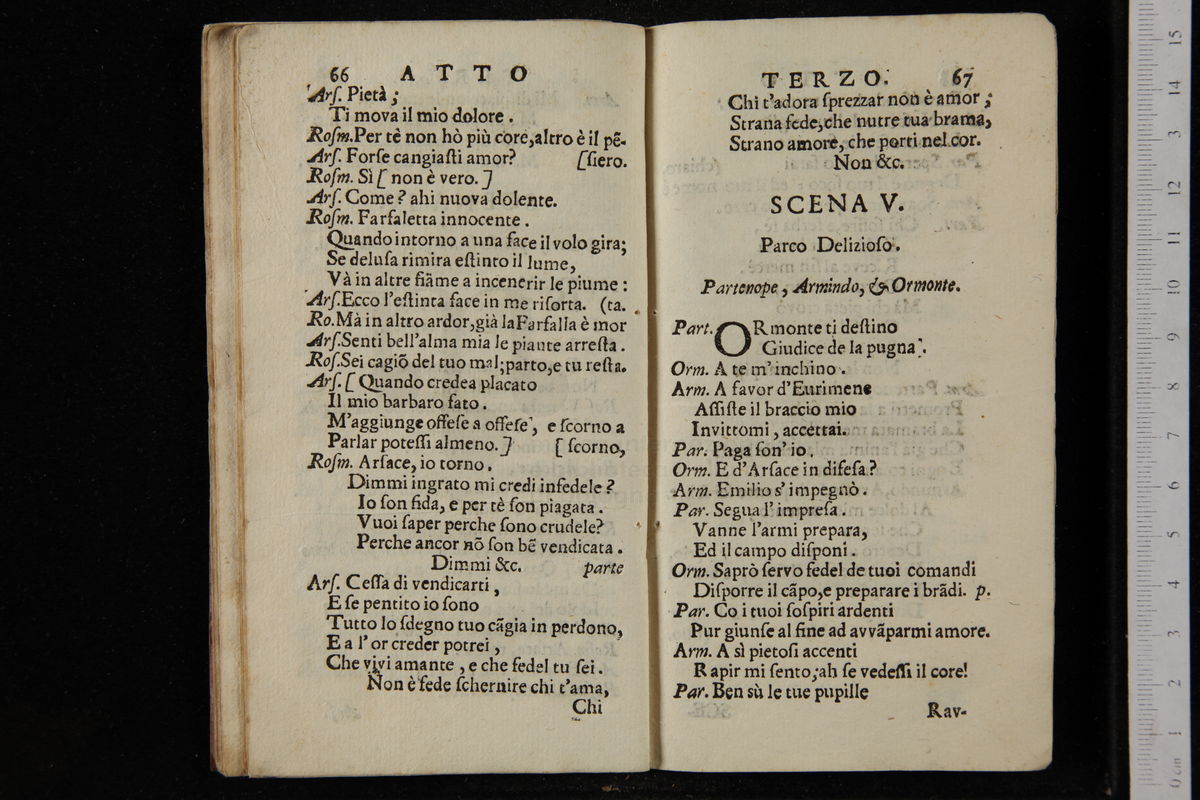 66 ATTO
Arſ. Pietà ;
Ti mova il mio dolore .
Roſm.Per tè non hò più core,altro è il pẽ-
Arſ. Forſe cangiaſti amor? [ſiero.
Roſm. Sì [ non è vero. ]
Arſ. Come ? ahi nuova dolente.
Roſm. Farfaletta innocente .
Quando intorno a una face il volo gira;
Se deluſa rimira eſtinto il lume,
Và in altre fiãme a incenerir le piume :
Arſ.Ecco l'eſtinta face in me riſorta. (ta.
Ro.Mà in altro ardor,già laFarfalla è mor
Arſ.Senti bell'alma mia le piante arreſta .
Roſ.Sei cagiõ del tuo mal;parto,e tu reſta.
Arſ. [ Quando credea placato
Il mio barbaro fato .
M'aggiunge offeſe a offeſe', e ſcorno a
Parlar poteſſi almeno. ] [ ſcorno,
Roſm. Arſace, io torno .
Dimmi ingrato mi credi infedele ?
Io ſon fida, e per tè ſon piagata .
Vuoi ſaper perche ſono crudele?
Perche ancor nõ ſon bẽ vendicata .
Dimmi &c. parte
Arſ. Ceſſa di vendicarti ,
E ſe pentito io ſono
Tutto lo ſdegno tuo cãgia in perdono,
E a l'or creder potrei ,
Che vivi amante , e che fedel tu ſei .
Non è fede ſchernire chi t'ama,
Chi
TERZO. 67
Chi t'adora ſprezzar non è amor ;
Strana fede,che nutre tua brama,
Strano amore, che porti nel cor.
Non &c.
SCENA V.
Parco Delizioſo .
Partenope , Armindo, & Ormonte.
Part. ORmonte ti deſtino
Giudice de la pugna .
Orm. A te m'inchino .
Arm. A favor d'Eurimene
Aſſiſte il braccio mio
Invittomi , accettai.
Par. Paga ſon' io .
Orm. E d'Arſace in difeſa ?
Arm. Emilio s' impegnò .
Par. Segua l' impreſa .
Vanne l'armi prepara,
Ed il campo diſponi .
Orm. Saprò ſervo fedel de tuoi comandi
Diſporre il cãpo,e preparare i brãdi. p.
Par. Co i tuoi ſoſpiri ardenti
Pur giunſe al fine ad avvãparmi amore.
Arm. A sì pietoſi accenti
Rapir mi ſento;ah ſe vedeſſi il core!
Par. Ben sù le tue pupille
Rav-